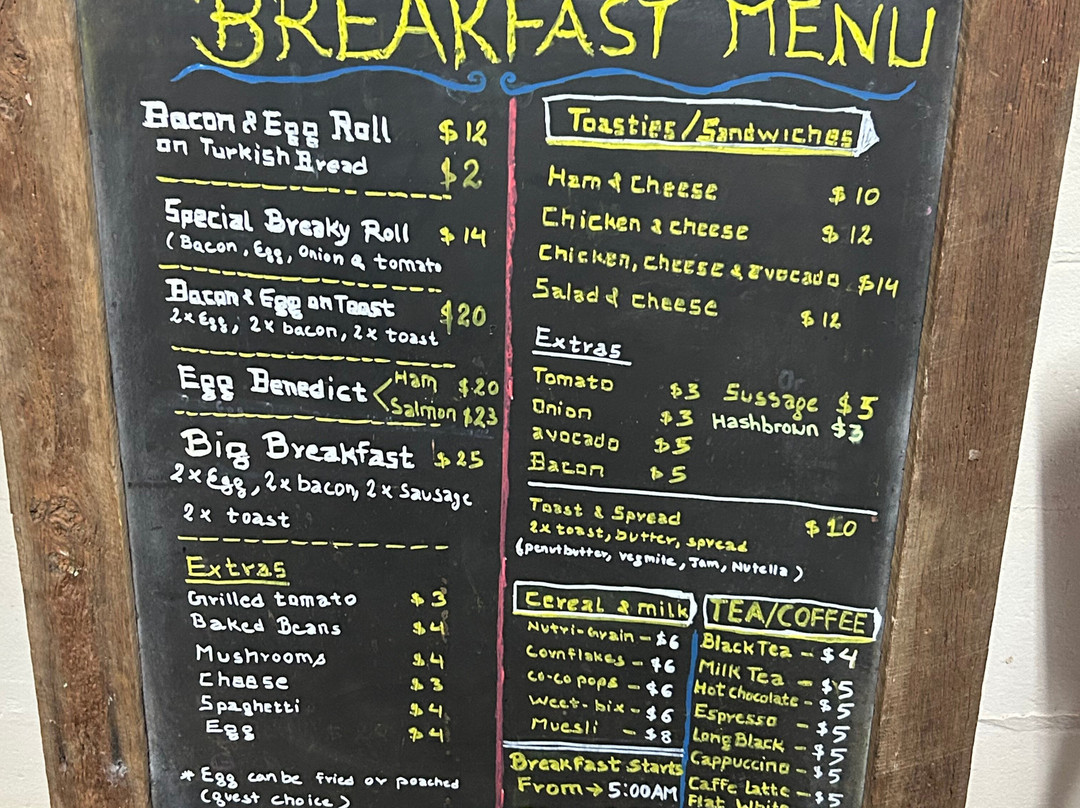 BREAKFAST MENU
Bacon & Egg Roll $12
on Turkish Bread $2
Special Breaky Roll $14
(Bacon, Egg, Onion & tomato
Bacon & Egg on Toast $20
2x Egg, 2x bacon, 2x toast
Egg Benedict < Ham $20
Salmon $23
Big Breakfast $25
2x Egg, 2x bacon, 2x Sausage
2x toast
Extras
Grilled tomato $3
Baked Beans $4
Mushrooms $4
Cheese $3
Spaghetti $4
Egg $4
* Egg can be fried or poached
(guest choice)
Toasties/Sandwiches
Ham & Cheese $10
Chicken & cheese $12
Chicken, cheese & avocado $14
Salad & cheese $12
Extras
Tomato $3 Sussage $5
Onion $3 Hashbrown $3
avocado $5
Bacon $5
Toast & Spread $10
2x toast, butter, spread
(penutbutter, vegmite, Jam, Nutella)
Cereal & milk
Nutri-Grain - $6
Cornflakes - $6
co-co pops - $6
Weet-bix - $6
Muesli - $8
Breakfast Starts
From → 5:00AM
TEA/COFFEE
Black Tea - $4
Milk Tea - $5
Hot chocolate - $5
Espresso - $5
Long Black - $5
Cappuccino - $5
Caffe Latte - $5
Flat White